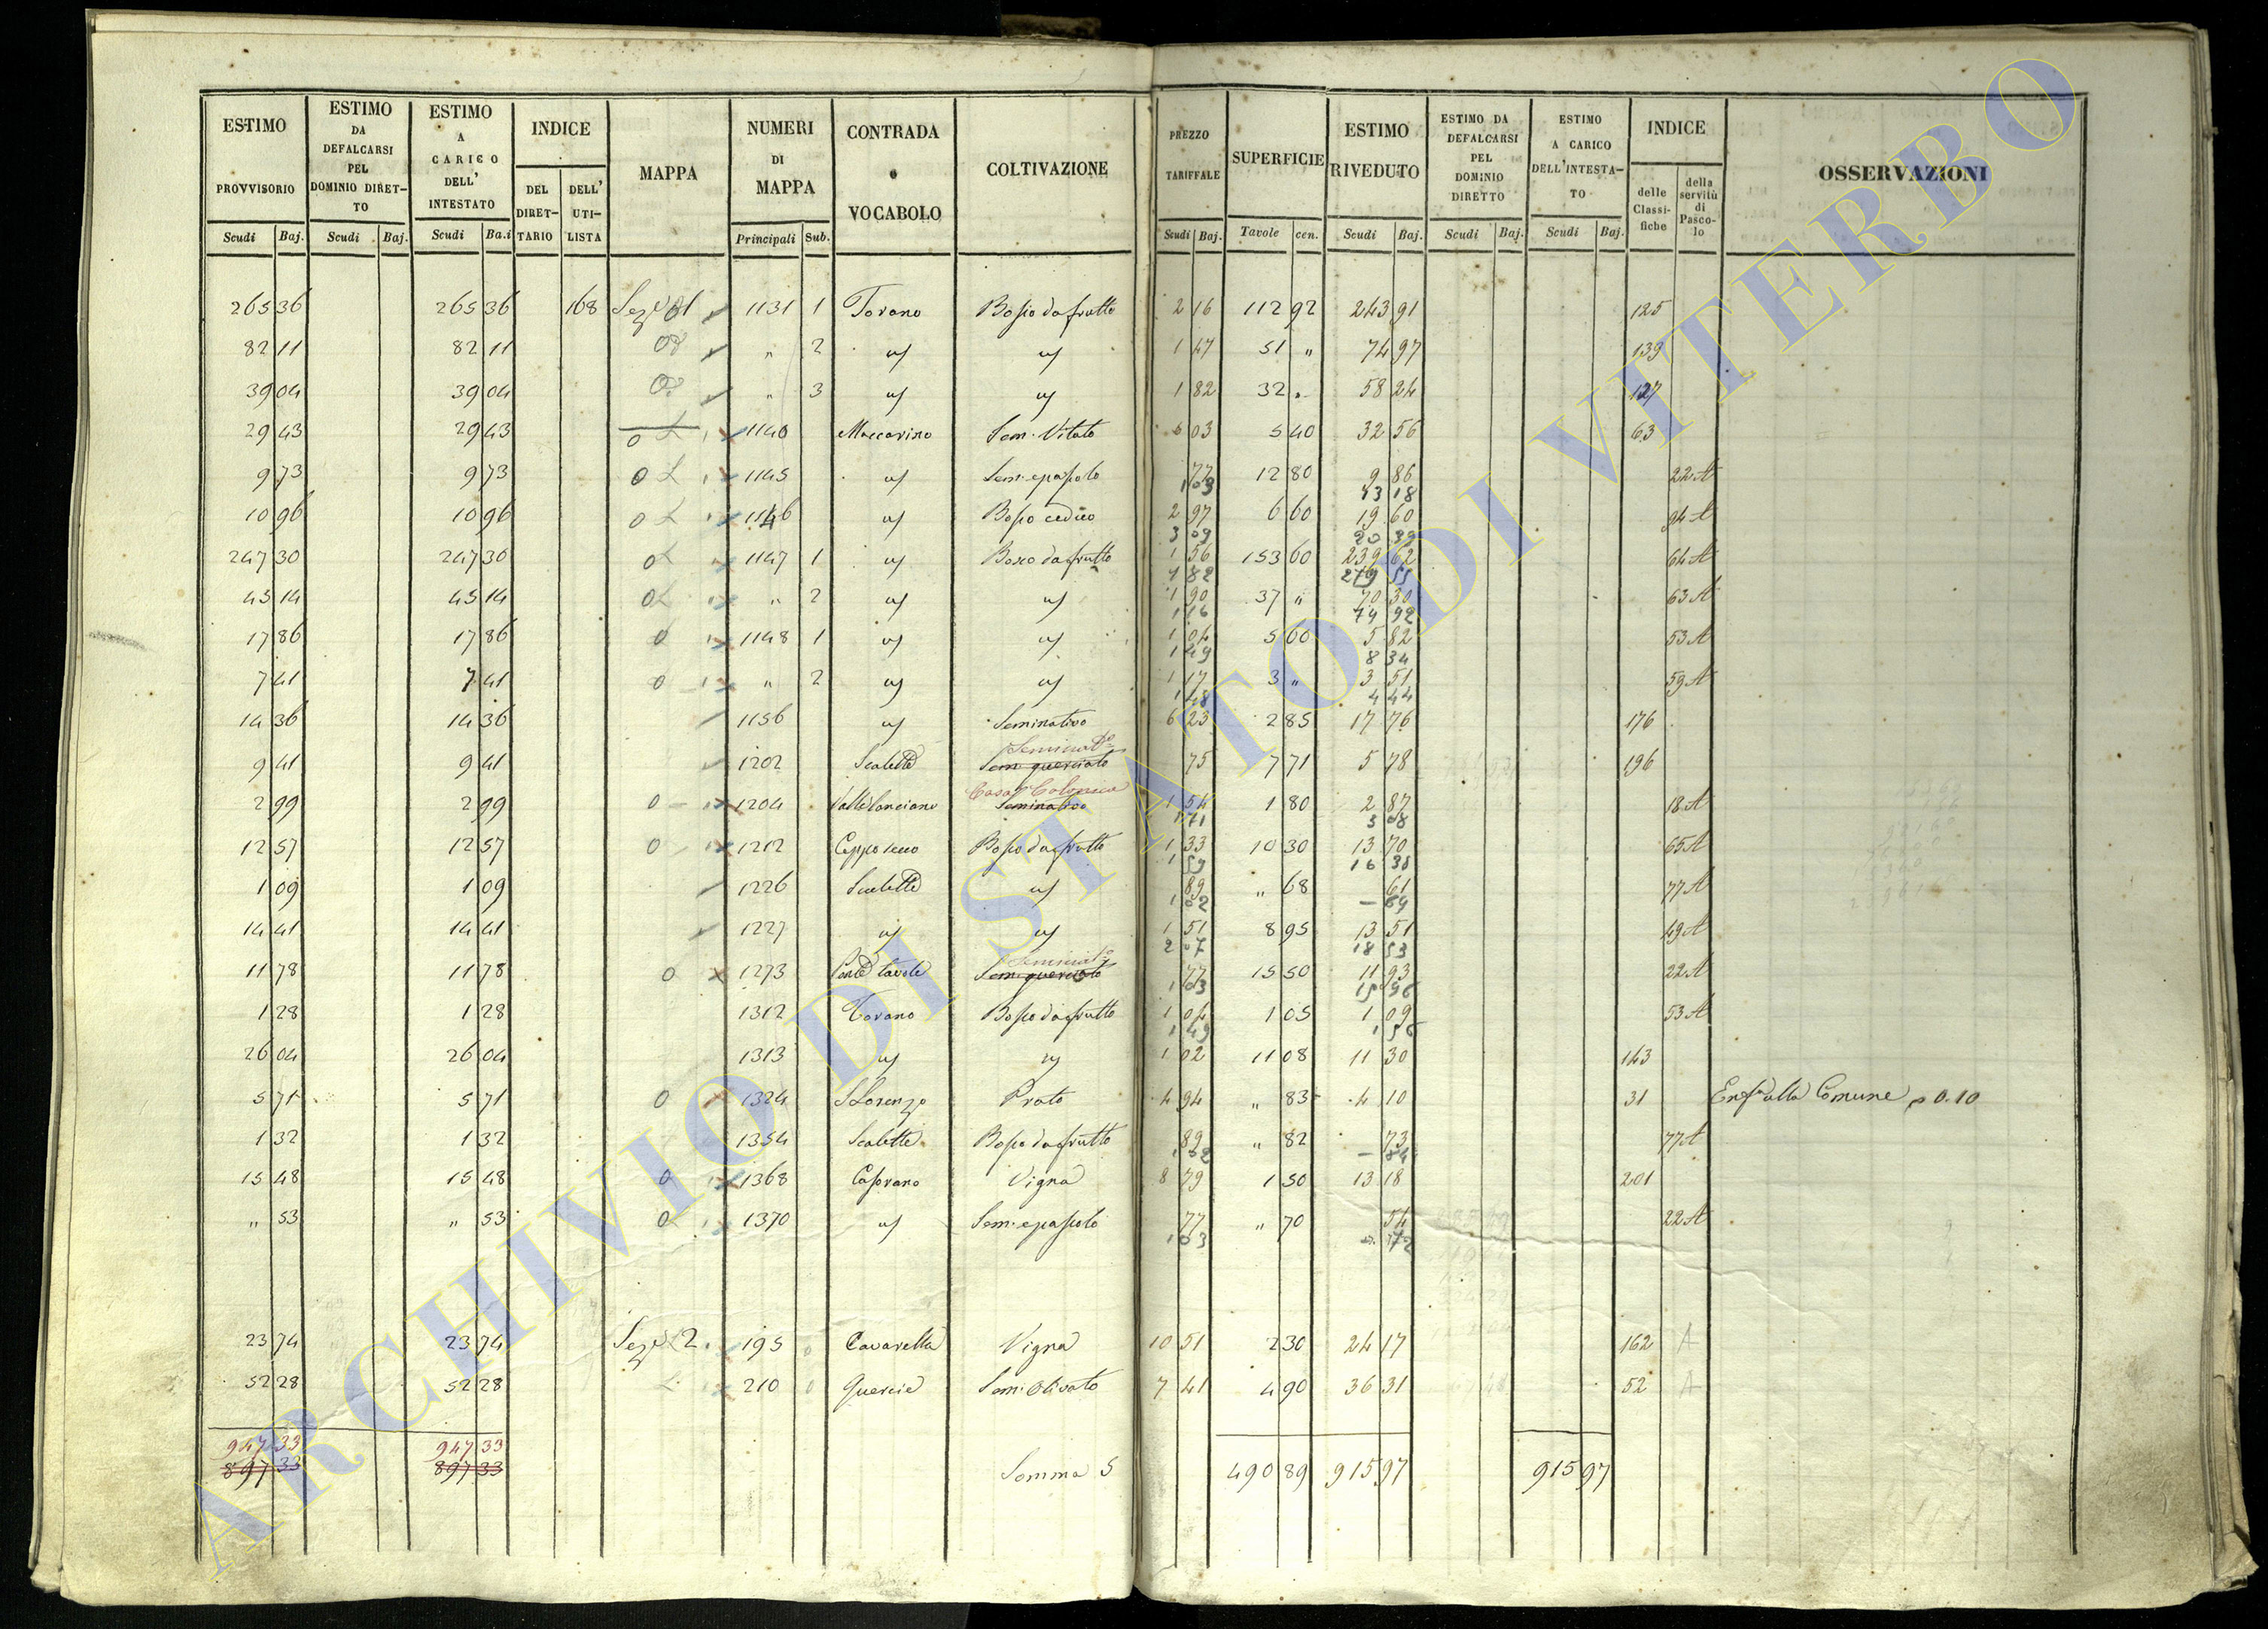 ESTIMO PROVVISORIO | ESTIMO DA DEFALCARSI PEL DOMINIO DIRETTO | ESTIMO A CARICO DELL' INTESTATO | INDICE | MAPPA | NUMERI DI MAPPA | CONTRADA o VOCABOLO | COLTIVAZIONE | PREZZO TARIFFALE | SUPERFICIE | ESTIMO RIVEDUTO | ESTIMO DA DEFALCARSI PEL DOMINIO DIRETTO | ESTIMO A CARICO DELL'INTESTATO | INDICE | OSSERVAZIONI
Scudi Baj. | Scudi Baj. | Scudi Ba.i | DEL DIRETTARIO | DELL' UTILISTA | Principali Sub. | Scudi Baj. | Tavole cen. | Scudi Baj. | Scudi Baj. | Scudi Baj. | delle Classifiche | della servitù di Pascolo
265 36 265 36 168 Sez. 1 1131 1 Torano Bosco da frutto 2 16 112 92 243 91 125
82 11 82 11 " 2 1 47 51 " 74 97 139
39 04 39 04 " 3 1 82 32 " 58 24 127
29 43 29 43 1140 Maccarino Sem. Vitato 6 03 5 40 32 56 63
9 73 9 73 1145 Sem. e pascolo 77 12 80 9 86 22 A
1 03 13 18
10 96 10 96 1146 Bosco ceduo 2 97 6 60 19 60 94 A
3 09 20 39
247 30 247 30 1147 1 Bosco da frutto 1 56 153 60 239 62 64 A
1 82 279 55
45 14 45 14 " 2 1 90 37 " 70 30 63 A
74 92
17 86 17 86 1148 1 1 04 5 60 5 82 53 A
1 49 8 34
7 41 7 41 " 2 1 17 3 " 3 51 59 A
1 48 4 44
14 36 14 36 1156 Seminativo 6 23 2 85 17 76 176
Seminat.o
9 41 9 41 1202 Scalette Sem. querciato 75 7 71 5 78 196
Casa Colonica
2 99 2 99 1204 Valle lanciano Seminativo 1 54 1 80 2 87 18 A
1 71 3 08
12 57 12 57 1212 Ceppo secco Bosco da frutto 1 33 10 30 13 70 65 A
1 59 16 38
1 09 1 09 1226 Scalette 89 " 68 61 77 A
1 02 – 69
14 41 14 41 1227 1 51 8 95 13 51 49 A
2 07 18 53
Seminat.o
11 78 11 78 1273 tavole Sem. querciato 77 15 50 11 93 22 A
1 03 15 96
1 28 1 28 1312 Torano Bosco da frutto 1 04 1 05 1 09 53 A
1 49 1 56
26 04 26 04 1313 1 02 11 08 11 30 143
5 71 5 71 1324 S Lorenzo Prato 4 94 " 83 4 10 31 alla Comune 0.10
1 32 1 32 1354 Scalette Bosco da frutto 89 " 82 73 77 A
1 02 – 84
15 48 15 48 1368 Casorano Vigna 8 79 1 50 13 18 201
" 53 " 53 1370 Sem. e pascolo 77 " 70 54 22 A
1 03 72
23 74 23 74 Sez. 2 195 Cavarella Vigna 10 51 2 30 24 17 162 A
52 28 52 28 210 Quercie Sem. Olivato 7 41 4 90 36 31 52 A
947 33 947 33
897 33 897 33 Somma S 490 89 915 97 915 97
ARCHIVIO DI STATO DI VITERBO